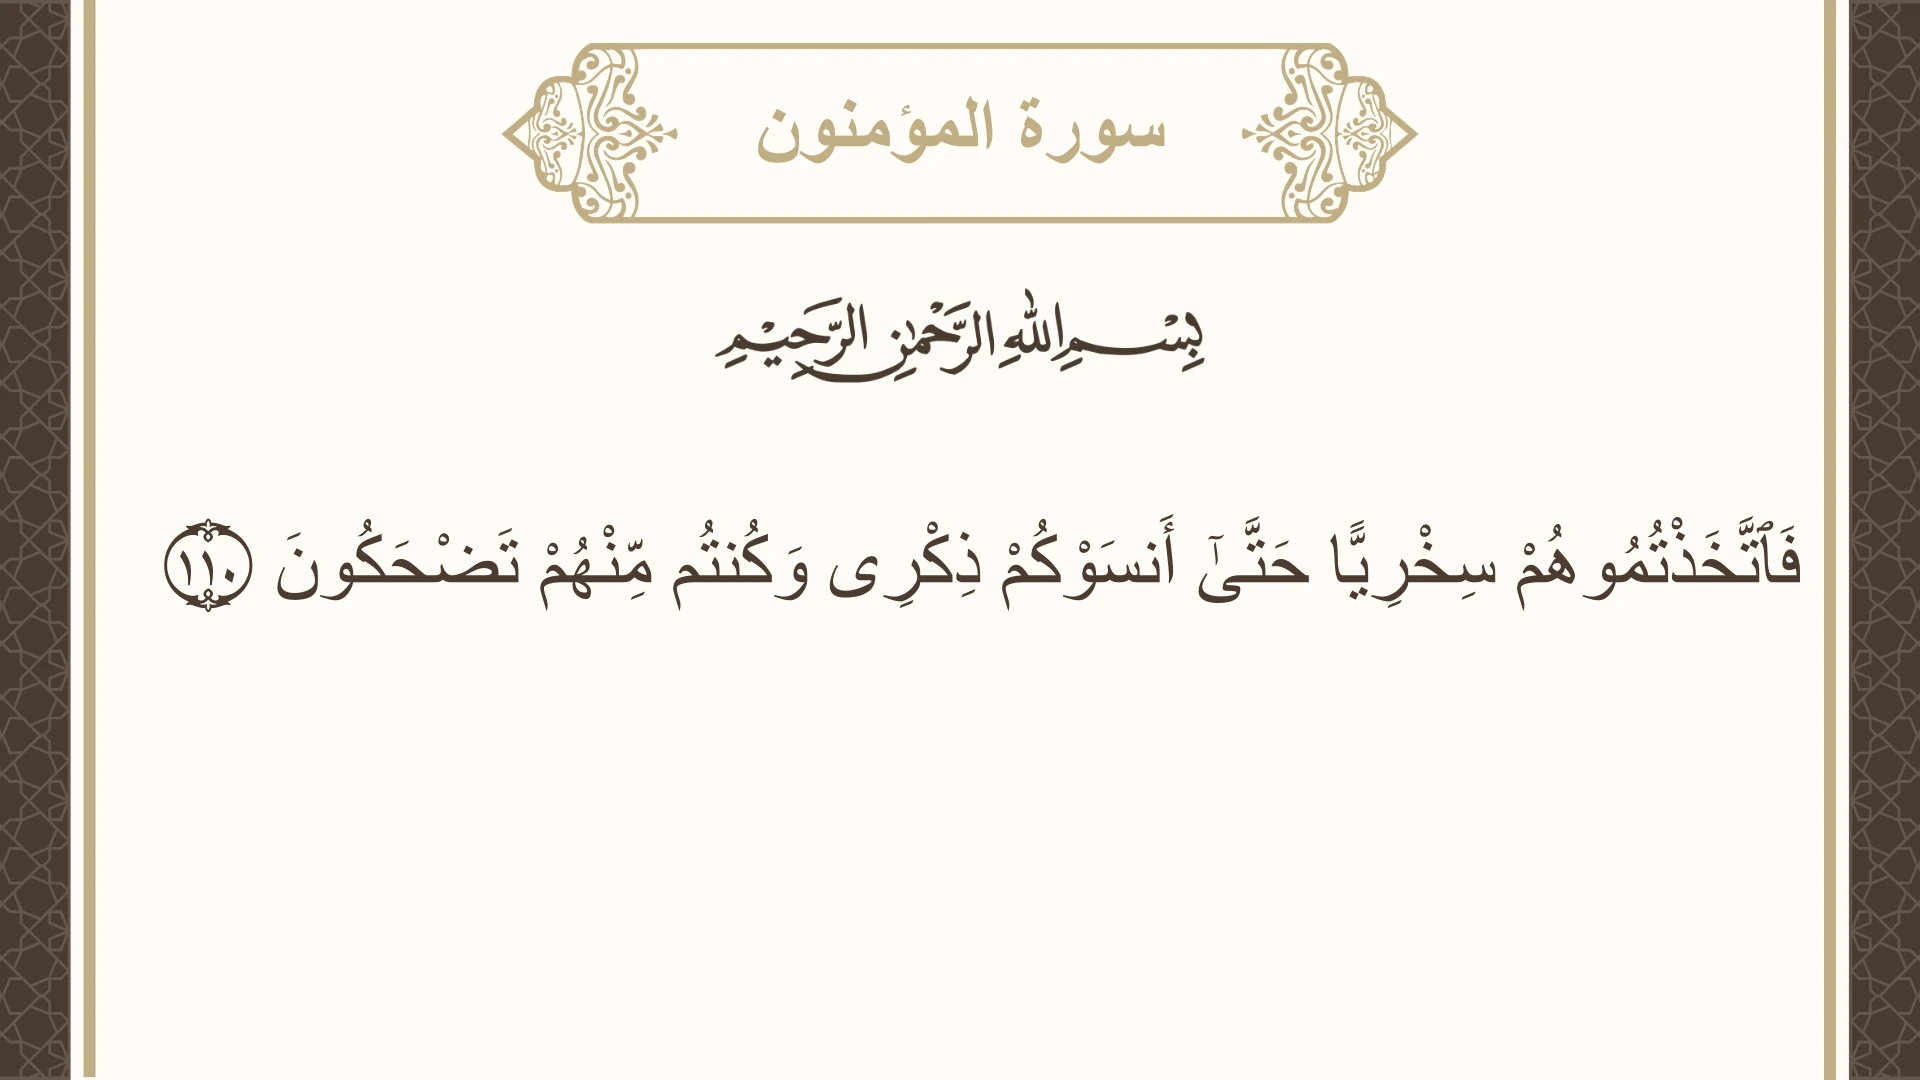 سورة المؤمنون
بِسْمِ اللهِ الرَّحْمٰنِ الرَّحِيْمِ
فَٱتَّخَذْتُمُوهُمْ سِخْرِيًّا حَتَّىٰٓ أَنسَوْكُمْ ذِكْرِى وَكُنتُم مِّنْهُمْ تَضْحَكُونَ ١١٠